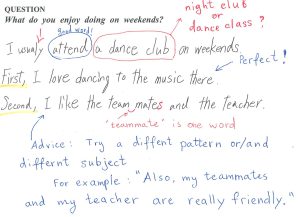 QUESTION
What do you enjoy doing on weekends?
night club
or
dance class?
good word!
I usually attend a dance club on weekends.
Perfect!
First, I love dancing to the music there.
Second, I like the team mates and the teacher.
'teammate' is one word
Advice: Try a diffent pattern or/and
differnt subject
For example: "Also, my teammates
and my teacher are really friendly."